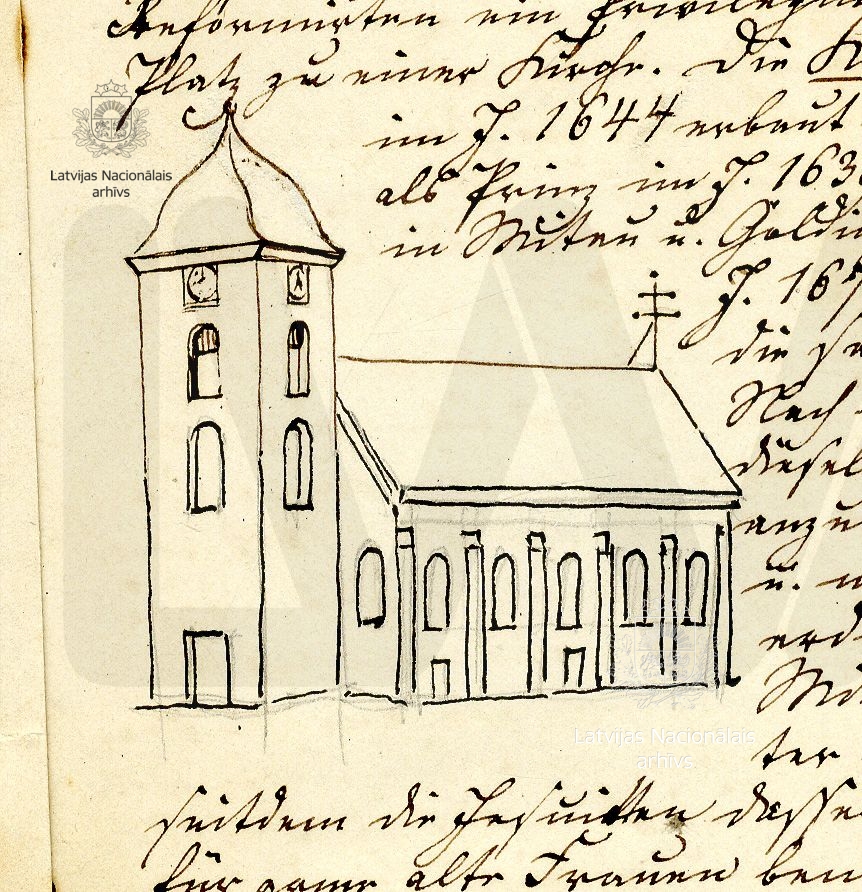 Reformirten ein Privilegiu
Platz zu einer Kirche. Die K
im J. 1644 erbaut
als Prinz im J. 163
in Mitau u. Goldi
J. 167
die
Nach
diesel
anzu
u.
erd
Mi
ter
seitdem die Jesuitten dasse
für arme alte Frauen ben
Latvijas Nacionālais
arhīvs
Latvijas Nacionālais
arhīvs